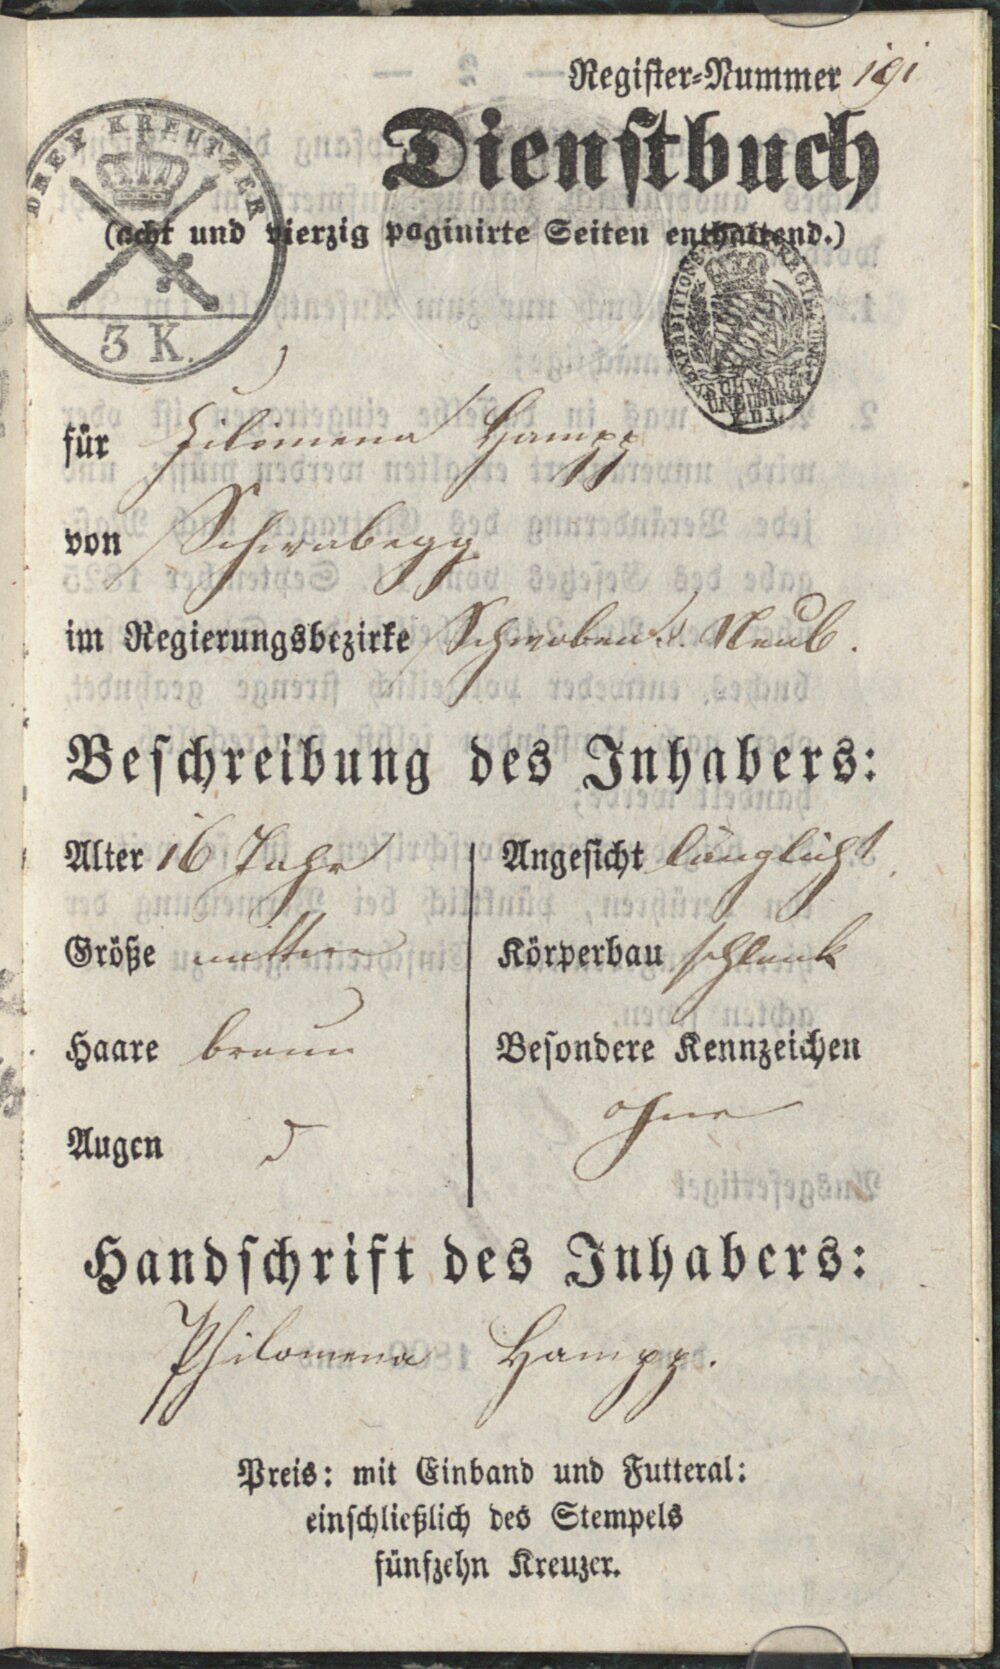 Register-Nummer 191
Dienstbuch
(acht und vierzig paginirte Seiten enthaltend.)
DREY KREUTZER
3 K.
EXPEDITIONS REGIERUNG
SCHWABEN
UND NEUBURG
K.D.I.
für Filomena Hampp
von Schwabegg
im Regierungsbezirke Schwaben u. Neub.
Beschreibung des Inhabers:
Alter 16 Jahr
Größe mittere
Haare braun
Augen
Angesicht länglicht
Körperbau schlank
Besondere Kennzeichen
ohne
Handschrift des Inhabers:
Philomena Hampp.
Preis: mit Einband und Futteral:
einschließlich des Stempels
fünfzehn Kreuzer.